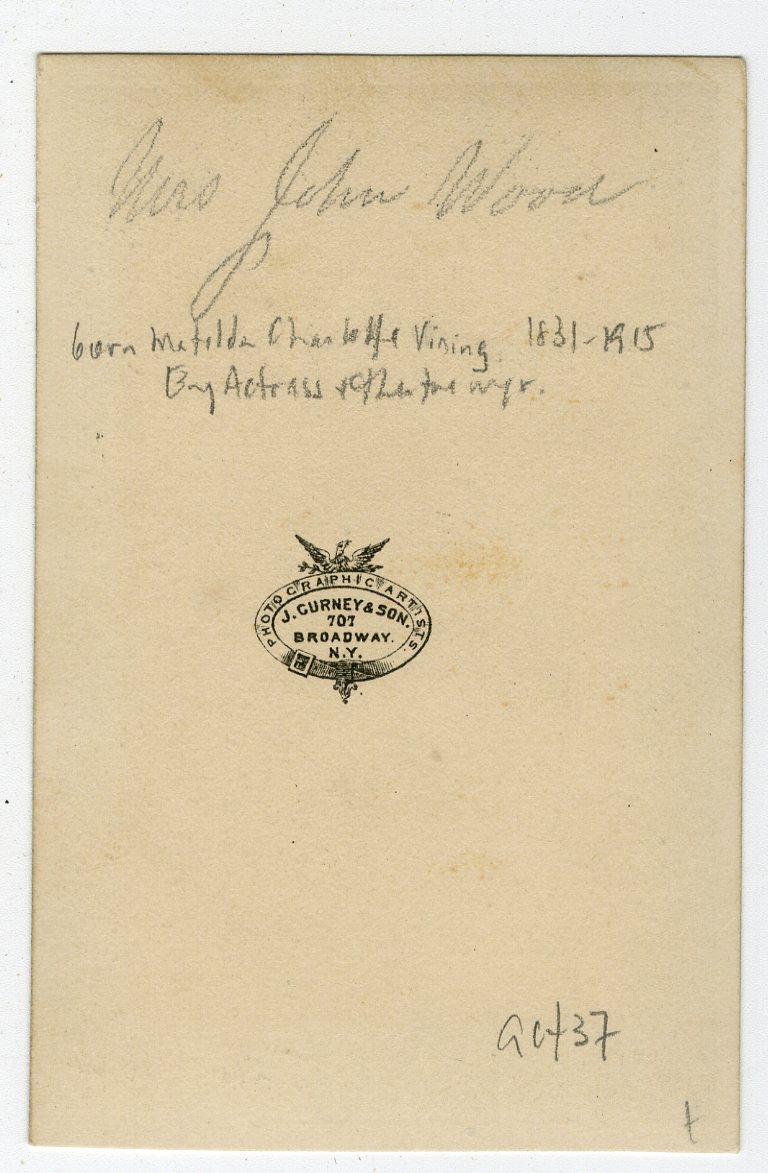 Mrs John Wood
born Matilda Charlotte Vining 1831-1915
Eng Actress & theatre mgr.
PHOTOGRAPHIC ARTISTS.
J. GURNEY & SON.
707
BROADWAY.
N.Y.
act37
t